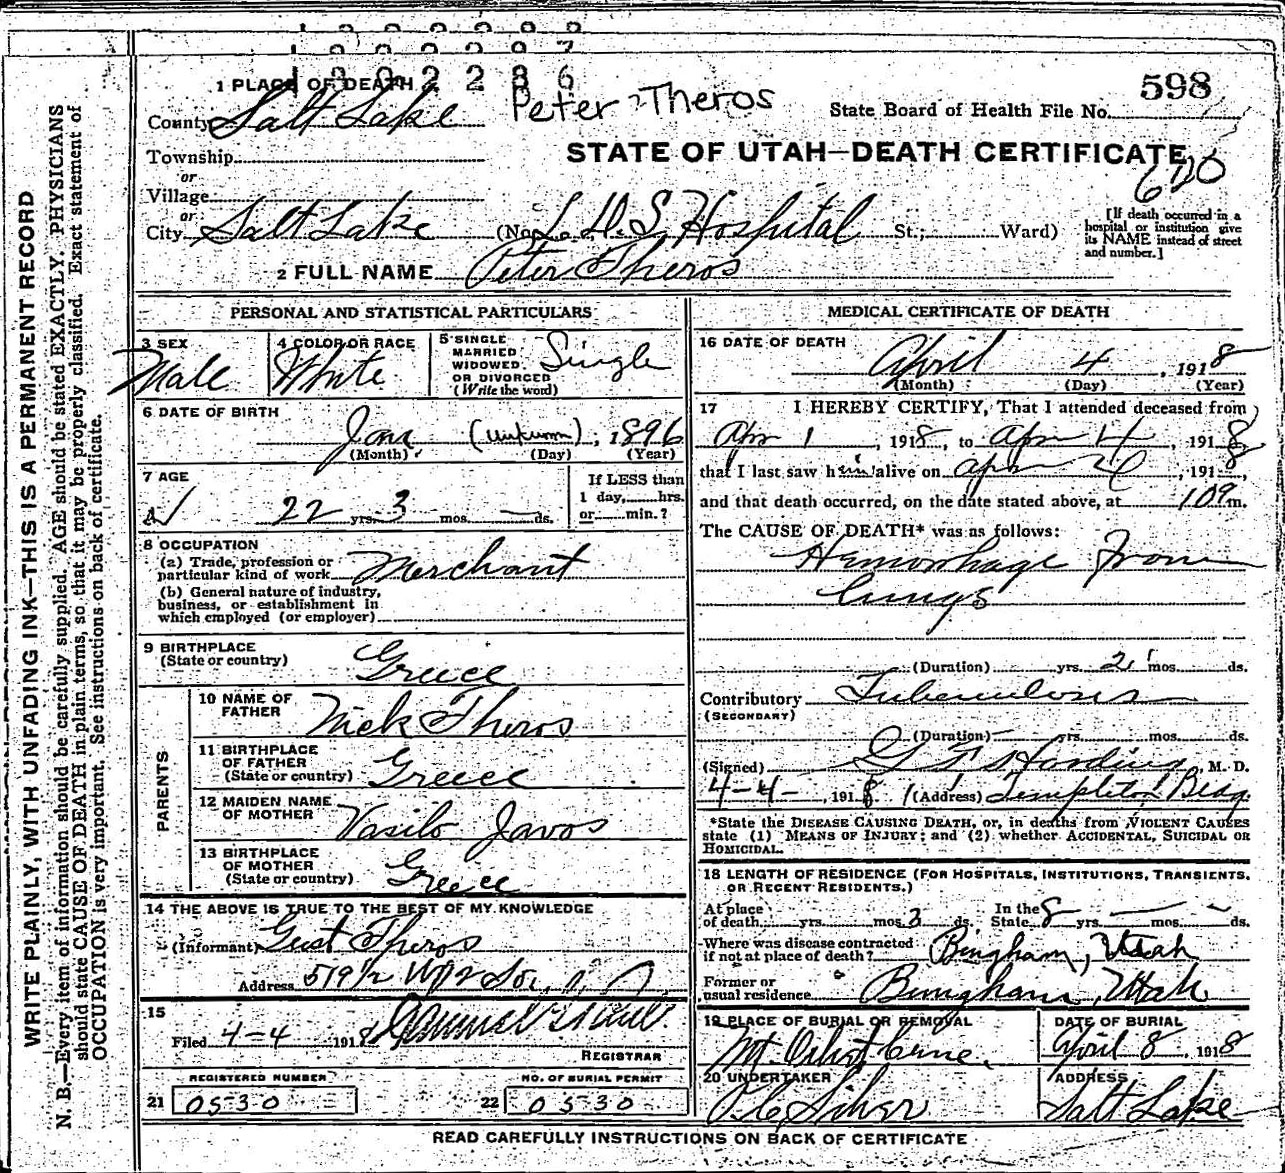 1002286
598
1 PLACE OF DEATH
Peter Theros
State Board of Health File No.
County Salt Lake
STATE OF UTAH—DEATH CERTIFICATE
Township
or
Village
or
City Salt Lake (No. L. D. S. Hospital St.; Ward)
[If death occurred in a
hospital or institution give
its NAME instead of street
and number.]
2 FULL NAME Peter Theros
PERSONAL AND STATISTICAL PARTICULARS
3 SEX
Male
4 COLOR OR RACE
White
5 SINGLE
MARRIED
WIDOWED
OR DIVORCED
(Write the word)
Single
6 DATE OF BIRTH
Jan (unknown), 1896
(Month) (Day) (Year)
7 AGE
22 yrs. 3 mos. — ds.
If LESS than
1 day, hrs.
or min.?
8 OCCUPATION
(a) Trade, profession or
particular kind of work Merchant
(b) General nature of industry,
business, or establishment in
which employed (or employer)
9 BIRTHPLACE
(State or country) Greece
PARENTS
10 NAME OF
FATHER Nick Theros
11 BIRTHPLACE
OF FATHER
(State or country) Greece
12 MAIDEN NAME
OF MOTHER Vasilo Javos
13 BIRTHPLACE
OF MOTHER
(State or country) Greece
14 THE ABOVE IS TRUE TO THE BEST OF MY KNOWLEDGE
(Informant) Gust Theros
Address 519 1/2 W 2 So.
15
Filed 4-4 1918
REGISTRAR
REGISTERED NUMBER
21 0530
NO. OF BURIAL PERMIT
22 0530
MEDICAL CERTIFICATE OF DEATH
16 DATE OF DEATH
April 4, 1918
(Month) (Day) (Year)
17 I HEREBY CERTIFY, That I attended deceased from
Apr 1, 1918, to Apr 4, 1918
that I last saw him alive on Apr 4, 1918,
and that death occurred, on the date stated above, at m.
The CAUSE OF DEATH* was as follows:
Hemorrhage From
Lungs
(Duration) yrs. 2 mos. ds.
Contributory Tuberculosis
(SECONDARY)
(Duration) yrs. mos. ds.
(Signed) G F Harding, M. D.
4-4-, 1918 (Address) Templeton Bldg
*State the DISEASE CAUSING DEATH, or, in deaths from VIOLENT CAUSES
state (1) MEANS OF INJURY; and (2) whether ACCIDENTAL, SUICIDAL OR
HOMICIDAL.
18 LENGTH OF RESIDENCE (FOR HOSPITALS, INSTITUTIONS, TRANSIENTS,
OR RECENT RESIDENTS.)
At place
of death yrs. mos. 3 ds.
In the
State 8 yrs. — mos. — ds.
Where was disease contracted
if not at place of death? Bingham, Utah
Former or
usual residence Bingham, Utah
19 PLACE OF BURIAL OR REMOVAL
Mt. Olivet Ceme.
DATE OF BURIAL
April 8, 1918
20 UNDERTAKER
ADDRESS
Salt Lake
READ CAREFULLY INSTRUCTIONS ON BACK OF CERTIFICATE
WRITE PLAINLY, WITH UNFADING INK—THIS IS A PERMANENT RECORD
N. B.—Every item of information should be carefully supplied. AGE should be stated EXACTLY. PHYSICIANS
should state CAUSE OF DEATH in plain terms, so that it may be properly classified. Exact statement of
OCCUPATION is very important. See instructions on back of certificate.